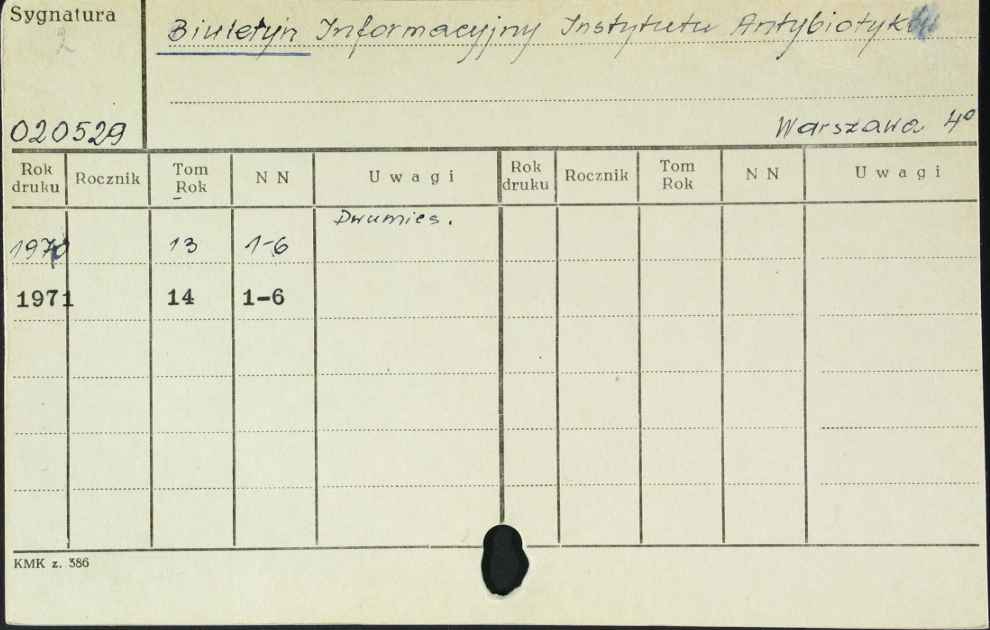 Sygnatura
2
Biuletyn Informacyjny Instytutu Antybiotyków
020529
Warszawa 4°
Rok druku Rocznik Tom Rok N N Uwagi Rok druku Rocznik Tom Rok N N Uwagi
Dwumies.
1970 13 1-6
1971 14 1-6
KMK z. 386